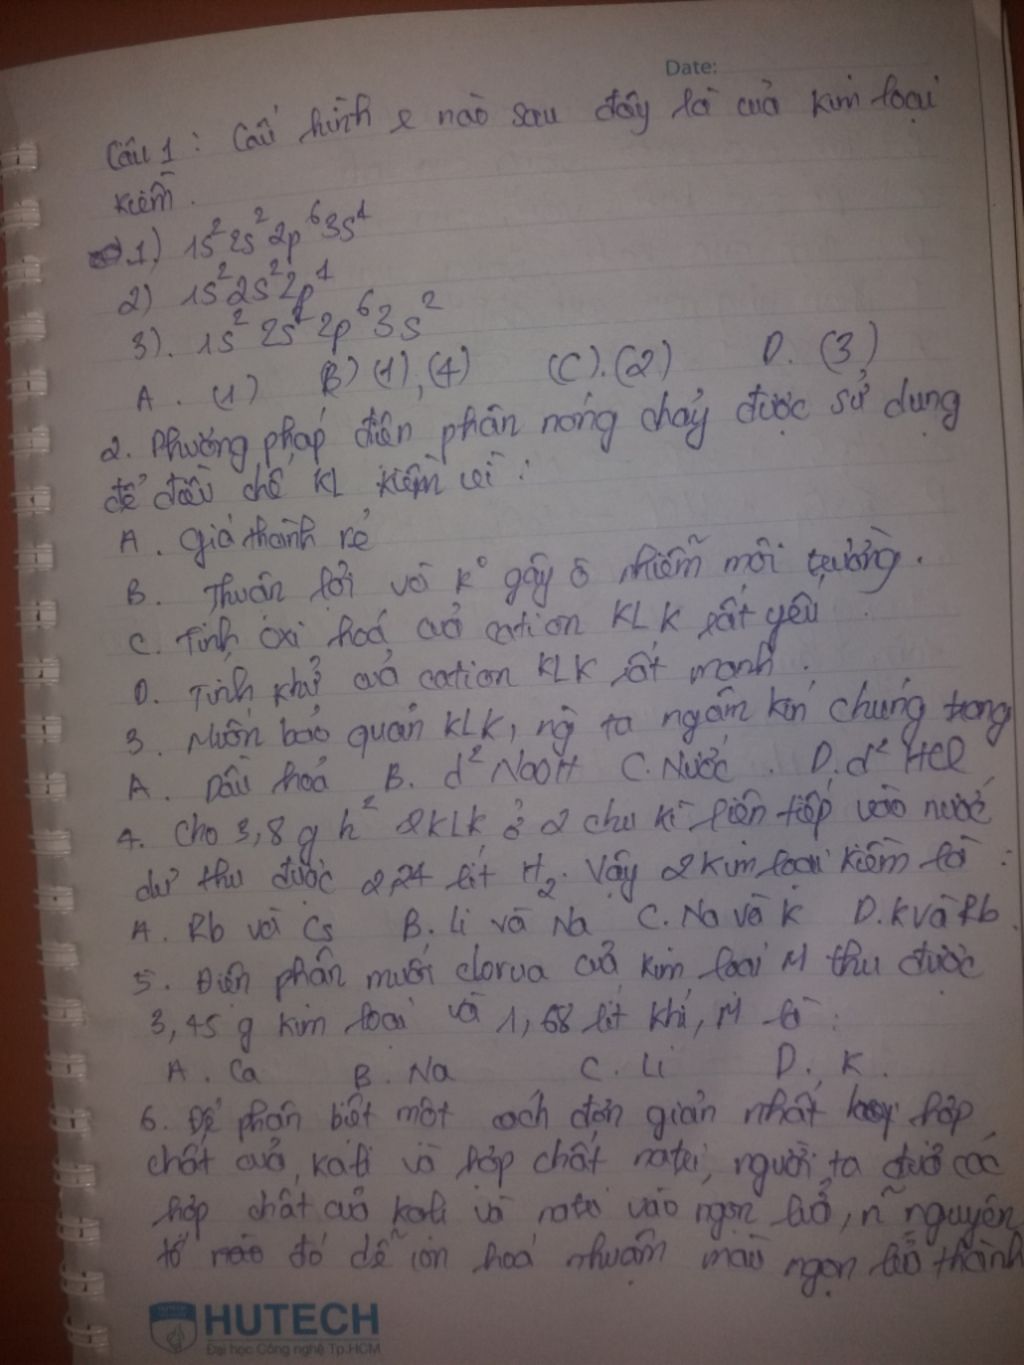 Date:
Câu 1: Cấu hình e nào sau đây là của kim loại
kiềm.
1) 1s² 2s² 2p⁶ 3s¹
2) 1s² 2s² 2p¹
3). 1s² 2s² 2p⁶ 3s²
A. (1) B) (1), (4) (C). (2) D. (3)
2. Phương pháp điện phân nóng chảy được sử dụng
để điều chế KL kiềm vì:
A. Giá thành rẻ
B. Thuận lợi và k° gây ô nhiễm môi trường.
C. Tính oxi hoá của cation KLK rất yếu
D. Tính khử của cation KLK rất mạnh.
3. Muốn bảo quản KLK, ng ta ngâm kín chúng trong
A. Dầu hoả B. d² NaOH C. Nước. D. d² HCl
4. Cho 3,8 g h² 2 KLK ở 2 chu kì liên tiếp vào nước
dư thu được 2,24 lít H₂. Vậy 2 kim loại kiềm là:
A. Rb và Cs B. Li và Na C. Na và K D. K và Rb.
5. Điện phân muối clorua của kim loại M thu được
3,45 g kim loại và 1,68 lít khí, M là:
A. Ca B. Na C. Li D. K.
6. Để phân biệt một cách đơn giản nhất hợp
chất của kali và hợp chất natri, người ta đưa các
hợp chất của kali và natri vào ngọn lửa, n~ nguyên
tố đó dễ ion hoá nhuốm màu ngọn lửa thành
HUTECH
Đại học Công nghệ Tp.HCM